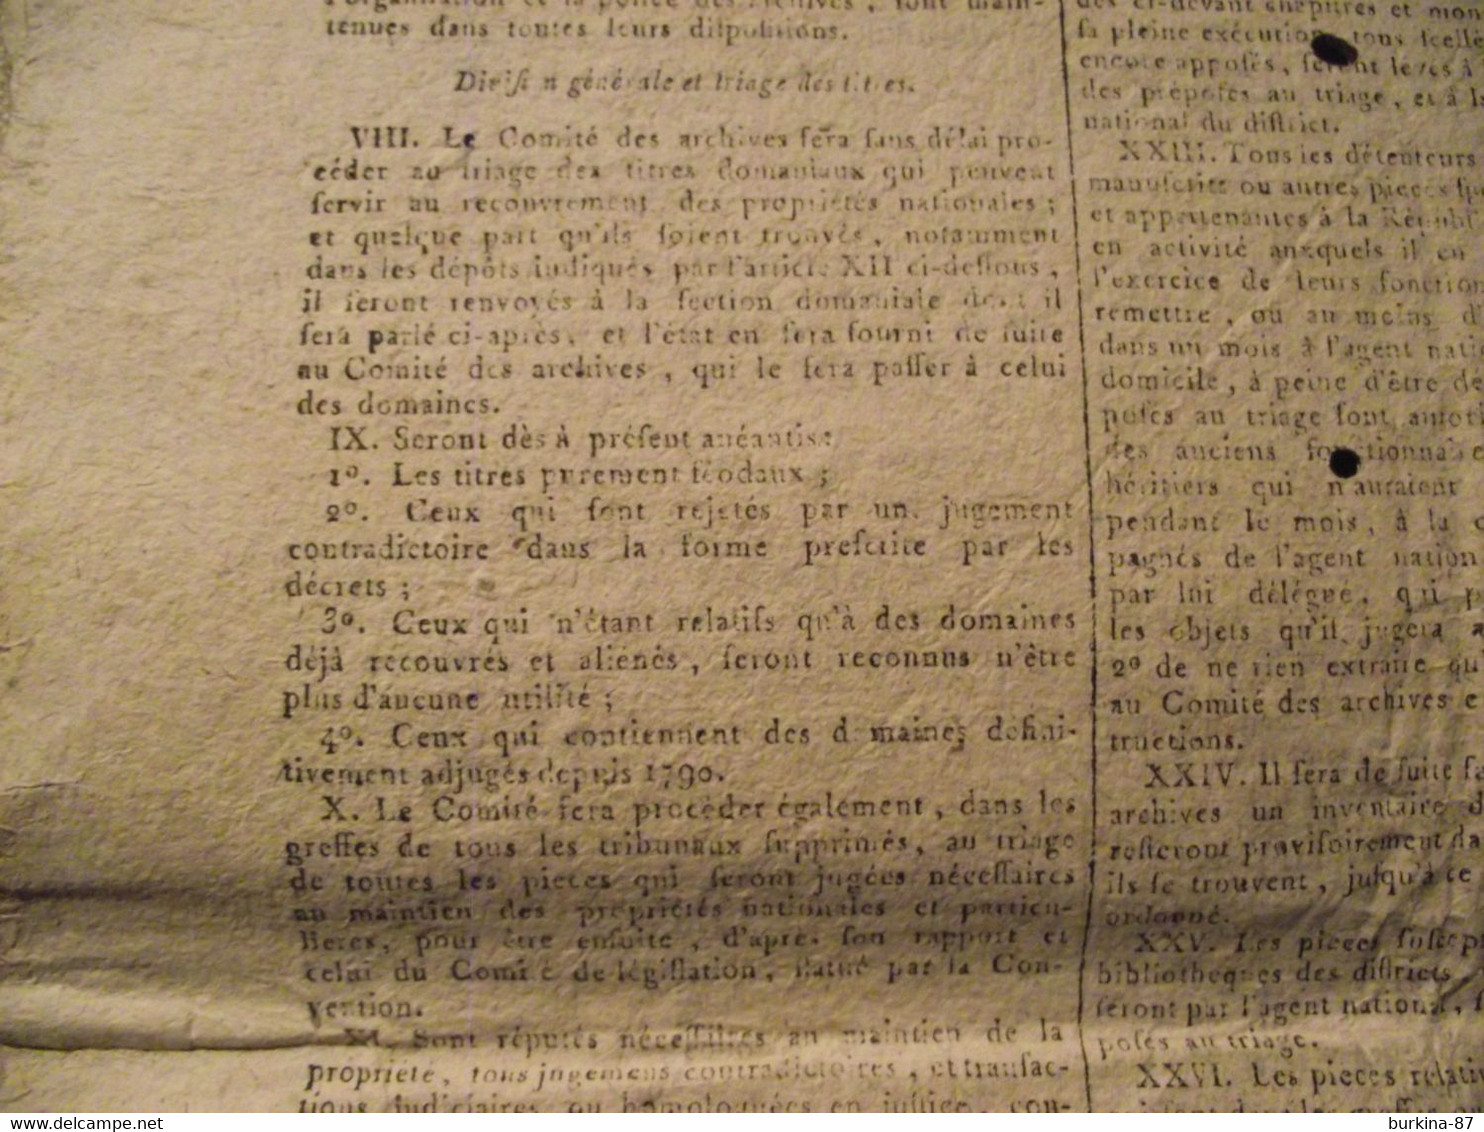 l'organisation et la police des Archives, sont main-
tenues dans toutes leurs dispositions.
Divisi n générale et triage des titres.
VIII. Le Comité des archives fera sans délai pro-
céder au triage des titres domaniaux qui peuvent
servir au recouvrement des propriétés nationales ;
et quelque part qu'ils soient trouvés, notamment
dans les dépôts indiqués par l'article XII ci-dessous,
il seront renvoyés à la section domaniale dont il
sera parlé ci-après, et l'état en sera fourni de suite
au Comité des archives, qui le fera passer à celui
des domaines.
IX. Seront dès à présent anéantis :
1º. Les titres purement féodaux ;
2º. Ceux qui sont rejetés par un jugement
contradictoire dans la forme prescrite par les
décrets ;
3º. Ceux qui n'étant relatifs qu'à des domaines
déjà recouvrés et aliénés, seront reconnus n'être
plus d'aucune utilité ;
4º. Ceux qui contiennent des d maines défini-
tivement adjugés depuis 1790.
X. Le Comité fera procéder également, dans les
greffes de tous les tribunaux supprimés, au triage
de toutes les pieces qui seront jugées nécessaires
au maintien des propriétés nationales et particu-
lieres, pour être ensuite, d'après son rapport et
celui du Comité de législation, statué par la Con-
vention.
XI. Sont réputés nécessaires au maintien de la
propriété, tous jugemens contradictoires, et transac-
tions judiciaires ou homologuées en justice, con-
des ci-devant chapitres et mon
sa pleine exécution, tous scellé
encore apposés, seront levés à
des préposés au triage, et à la
national du district.
XXIII. Tous les détenteurs
manuscrits ou autres pieces
et appartenantes à la Républ
en activité auxquels il en
l'exercice de leurs fonction
remettre, ou au moins d'
dans un mois à l'agent nati
domicile, à peine d'être dé
posés au triage sont autori
des anciens fonctionnaire
héritiers qui n'auraient
pendant le mois, à la c
pagnés de l'agent nation
par lui délégué, qui p
les objets qu'il jugera a
2º de ne rien extraire qu'
au Comité des archives e
tructions.
XXIV. Il sera de suite fa
archives un inventaire d
resteront provisoirement da
ils se trouvent, jusqu'à ce
ordonné.
XXV. Les pieces suscept
bibliotheques des districts,
seront par l'agent national, s
posés au triage.
XXVI. Les pieces relativ
burkina-87